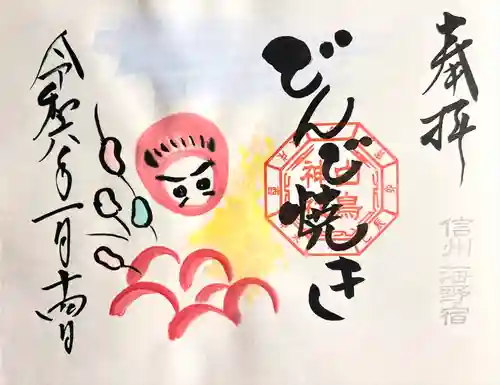 奉拝
信州海野宿
どんど焼き
令和八年一月十四日